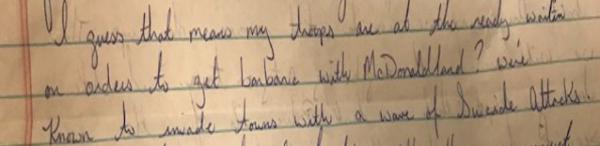 I guess that means my troops are at the ready waitin
on orders to get barbaric with McDonaldland? we're
Known to invade towns with a wave of Suicide Attacks.